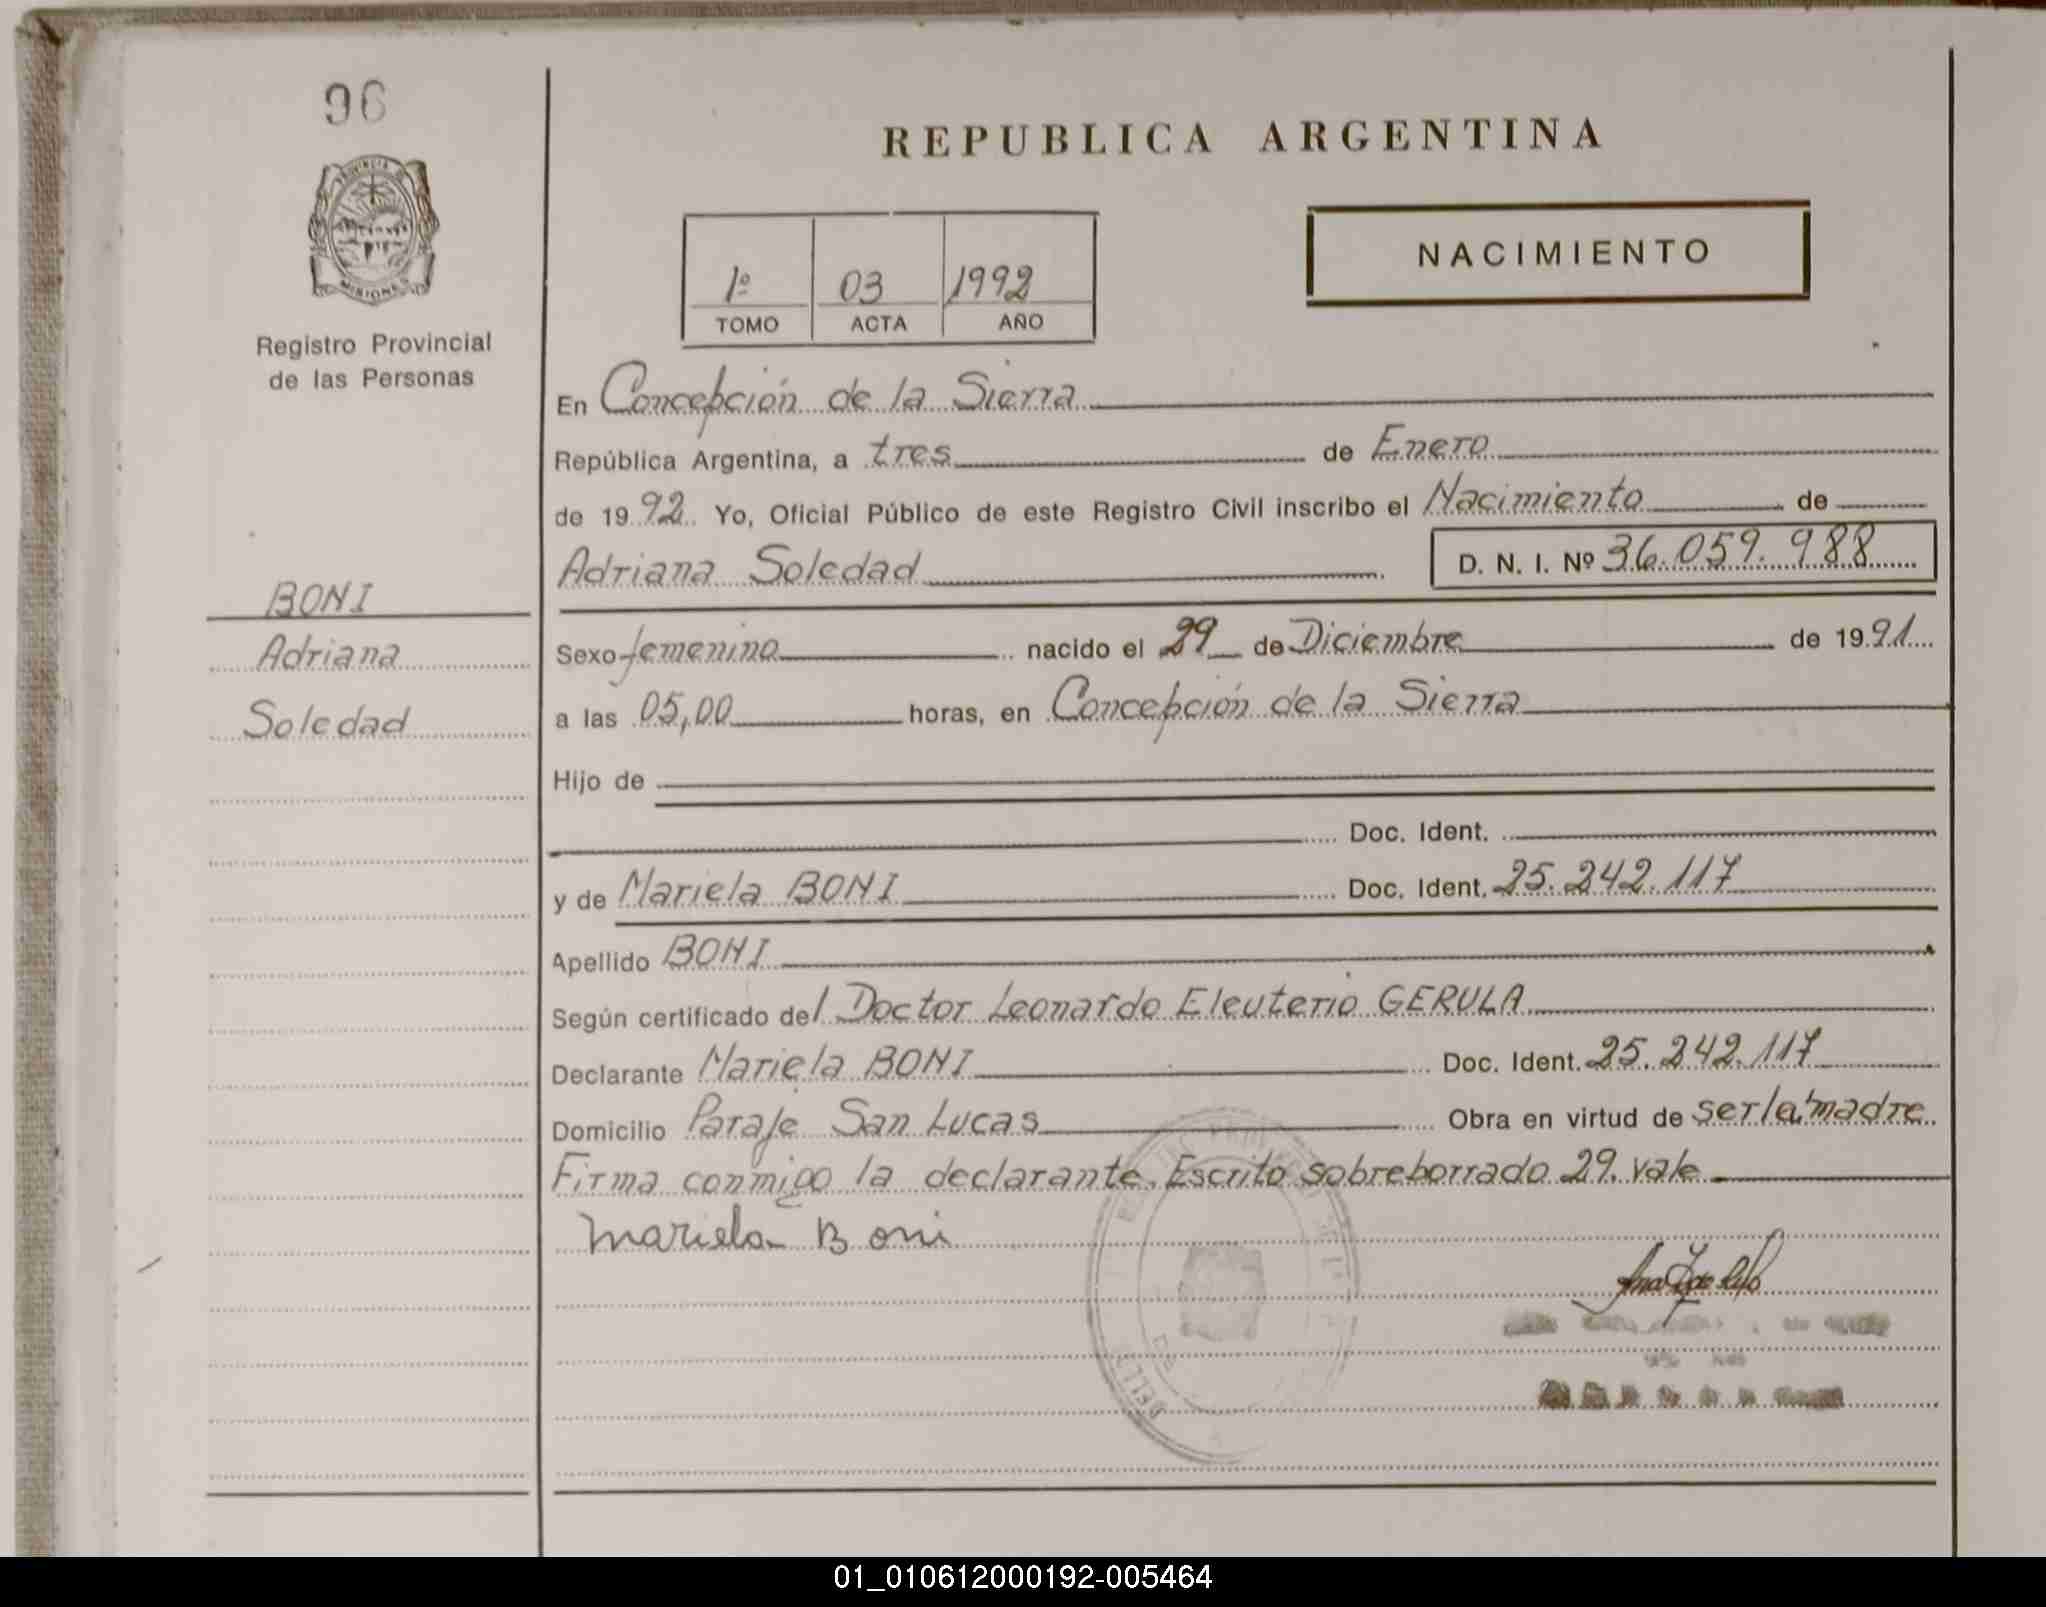 96
PROVINCIA DE
MISIONES
Registro Provincial
de las Personas
BONI
Adriana
Soledad
REPUBLICA ARGENTINA
NACIMIENTO
1º 03 1992
TOMO ACTA AÑO
En Concepción de la Sierra
República Argentina, a tres de Enero
de 1992 Yo, Oficial Público de este Registro Civil inscribo el Nacimiento de
Adriana Soledad D. N. I. Nº 36.059.988
Sexo femenino nacido el 29 de Diciembre de 1991
a las 05,00 horas, en Concepción de la Sierra
Hijo de
Doc. Ident.
y de Mariela BONI Doc. Ident. 25.242.117
Apellido BONI
Según certificado del Doctor Leonardo Eleuterio GERULA
Declarante Mariela BONI Doc. Ident. 25.242.117
Domicilio Paraje San Lucas Obra en virtud de ser la madre.
Firma conmigo la declarante. Escrito sobreborrado 29. vale
Mariela Boni
01_010612000192-005464